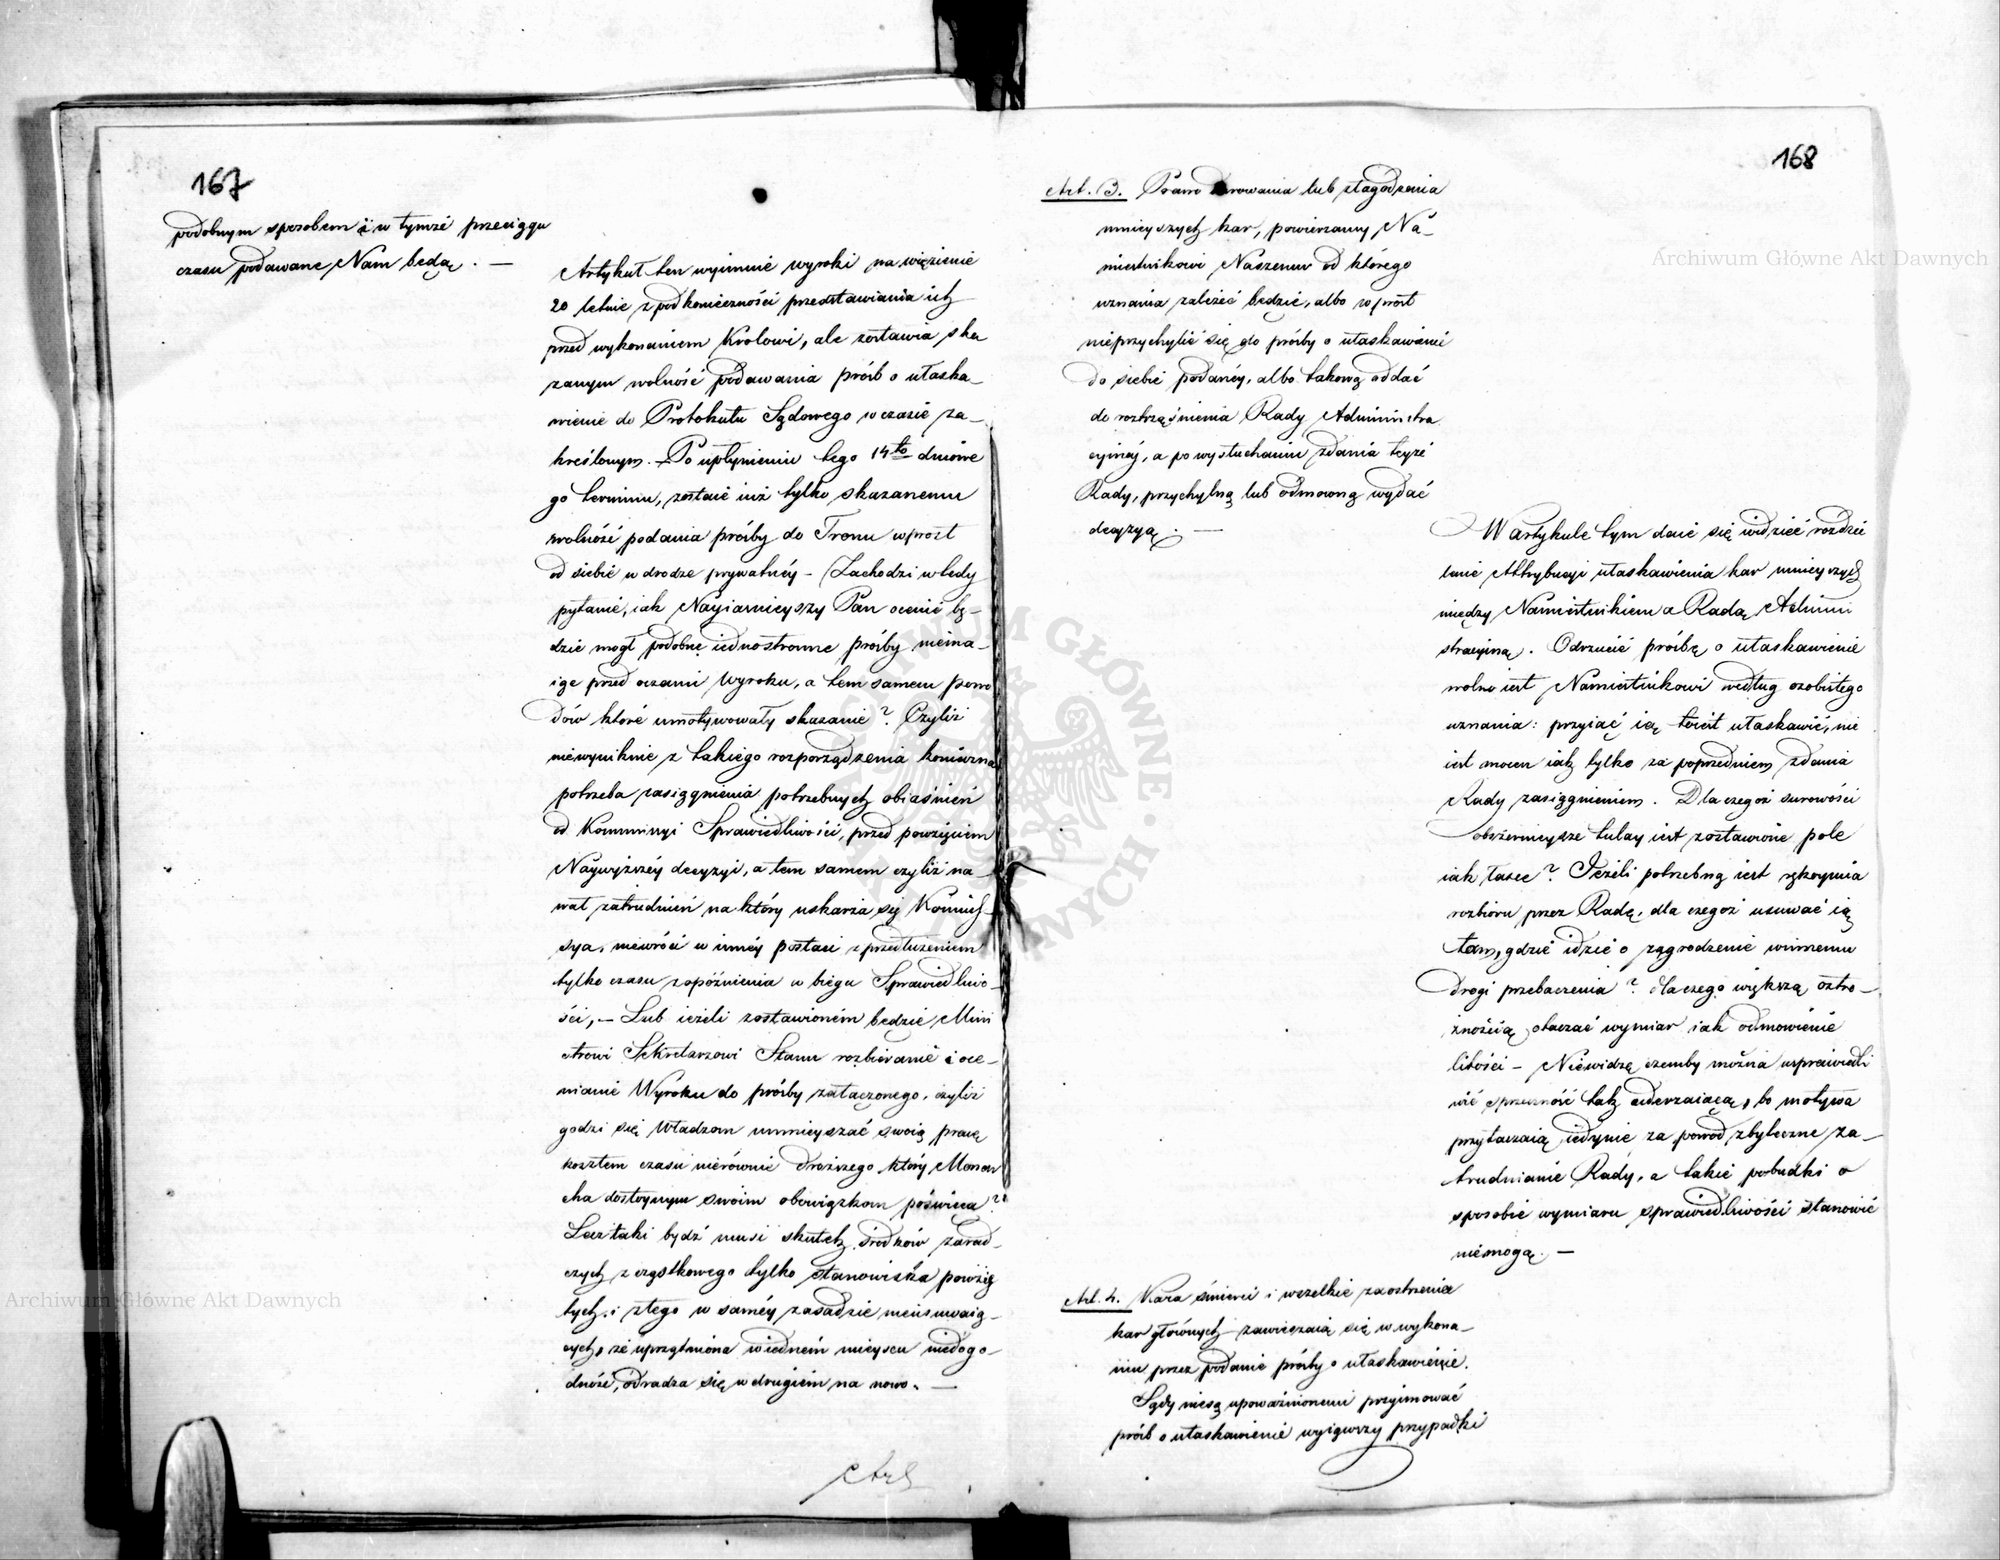 167
podobnym sposobem i w tymże przeciągu
czasu podawane Nam będą. —
Artykuł ten wyimuie wyroki na więzienie
20 letnie z pod konieczności przedstawiania ich
przed wykonaniem Krolowi, ale zostawia ska
zanym wolność podawania próśb o ułaska_
wienie do Protokułu Sądowego w czasie za_
kreślonym. Po upłynieniu tego 14to dniowe
go terminu, zostaie iuż tylko skazanemu
wolność podania prośby do Tronu wprost
od siebie w drodze prywatnéy – Zachodzi wtedy
pytanie, iak Nayiaśnieyszy Pan ocenić bę_
dzie mogł podobne iednostronne prośby niema_
iąc przed oczami Wyroku, a tem samem powo
dów które umotywowały skazanie? Czyliż
niewyniknie z takiego rozporządzenia konieczna
potrzeba zasiągnienia potrzebnych obiaśnień
od Kommissyi Sprawiedliwości, przed powzięciem
Naywyższéy decyzyi, a tem samem czyliż na_
wał zatrudnień na który uskarża się Kommis_
sya, niewróci w innéy postaci z przedłużeniem
tylko czasu zapóźnienia w biegu Sprawiedliwo_
ści, — Lub ieżeli zostawioném będzie Mini
strowi Sekretarzowi Stanu rozbieranie i oce_
nianie Wyroku do prośby załączonego, czyliż
godzi się Władzom umnieyszać swoią pracę
kosztem czasu nierównie droższego który Monar
cha dostoynym swoim obowiązkom poświęca?
Lecz taki bydź musi skutek środków zarad_
czych z cząstkowego tylko stanowiska powzię
tych i złego w saméy zasadzie nieusuwaią_
cych, że uprzątniona w iedném mieyscu niedogo_
dność, odradza się w drugiém na nowo. —
Art
168
Art. 3. Prawo darowania lub złagodzenia
mnieyszych kar, powierzamy Na_
miestnikowi Naszemu od którego
uznania zależeć będzie, albo wprost
nieprzychylić się do prośby o ułaskawienie
do siebie podanéy, albo takową oddać
do roztrząśnienia Rady Administra
cyinéy, a po wysłuchaniu zdania teyże
Rady, przychylną lub odmowną wydać
decyzyą. —
W artykule tym daie się widzieć rozdzie
lenie Attrybucyi ułaskawienia kar mnieyszych
między Namiestnikiem a Radą Admini
stracyiną. Odrzucić prośbę o ułaskawienie
wolno iest Namiestnikowi według osobistego
uznania: przyiąć ią toiest ułaskawić, nie
iest mocen iak tylko za poprzedniem zdania
Rady zasiągnieniem. Dla czegoż surowości
obszernieysze tutay iest zostawione pole
iak łasce? Jeżeli potrzebną iest rękoymia
rozbioru przez Radę, dla czegoż usuwać ią
tam, gdzie idzie o zagrodzenie winnemu
drogi przebaczenia? dlaczego większą ostro_
żnością otaczać wymiar iak odmowienie
litości – Niewidzę czemby można usprawiedli
wić sprzeczność tak uderzaiącą, bo motywa
przytaczaią iedynie za powód zbyteczne za_
trudnianie Rady, a takie pobudki o
sposobie wymiaru sprawiedliwości stanowić
niemogą. —
Art. 4. Kara śmierci i wszelkie zaostrzenia
kar głównych zawieszaią się w wykona_
niu przez podanie prośby o ułaskawienie.
Sądy niesą upoważnionemi przyimować
próśb o ułaskawienie wyiąwszy przypadki
Archiwum Główne Akt Dawnych
Archiwum Główne Akt Dawnych
ARCHIWUM GŁÓWNE AKT DAWNYCH